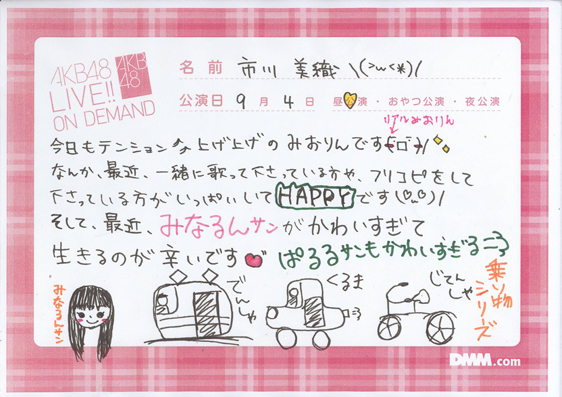 AKB48
LIVE!!
ON DEMAND
AKB
48
名前 市川 美織 \(>ω<*)/
公演日 9月 4日 昼公演・おやつ公演・夜公演
リアルみおりん
今日もテンションな上げ上げのみおりんです
なんか、最近、一緒に歌って下さっている方や、フリコピをして
下さっている方がいっぱいいてHAPPYです
そして、最近、みなるんサンがかわいすぎて
生きるのが辛いです ぱるるサンもかわいすぎる
みなるんサン
でんしゃ
くるま
じてんしゃ
乗り物シリーズ
DMM.com